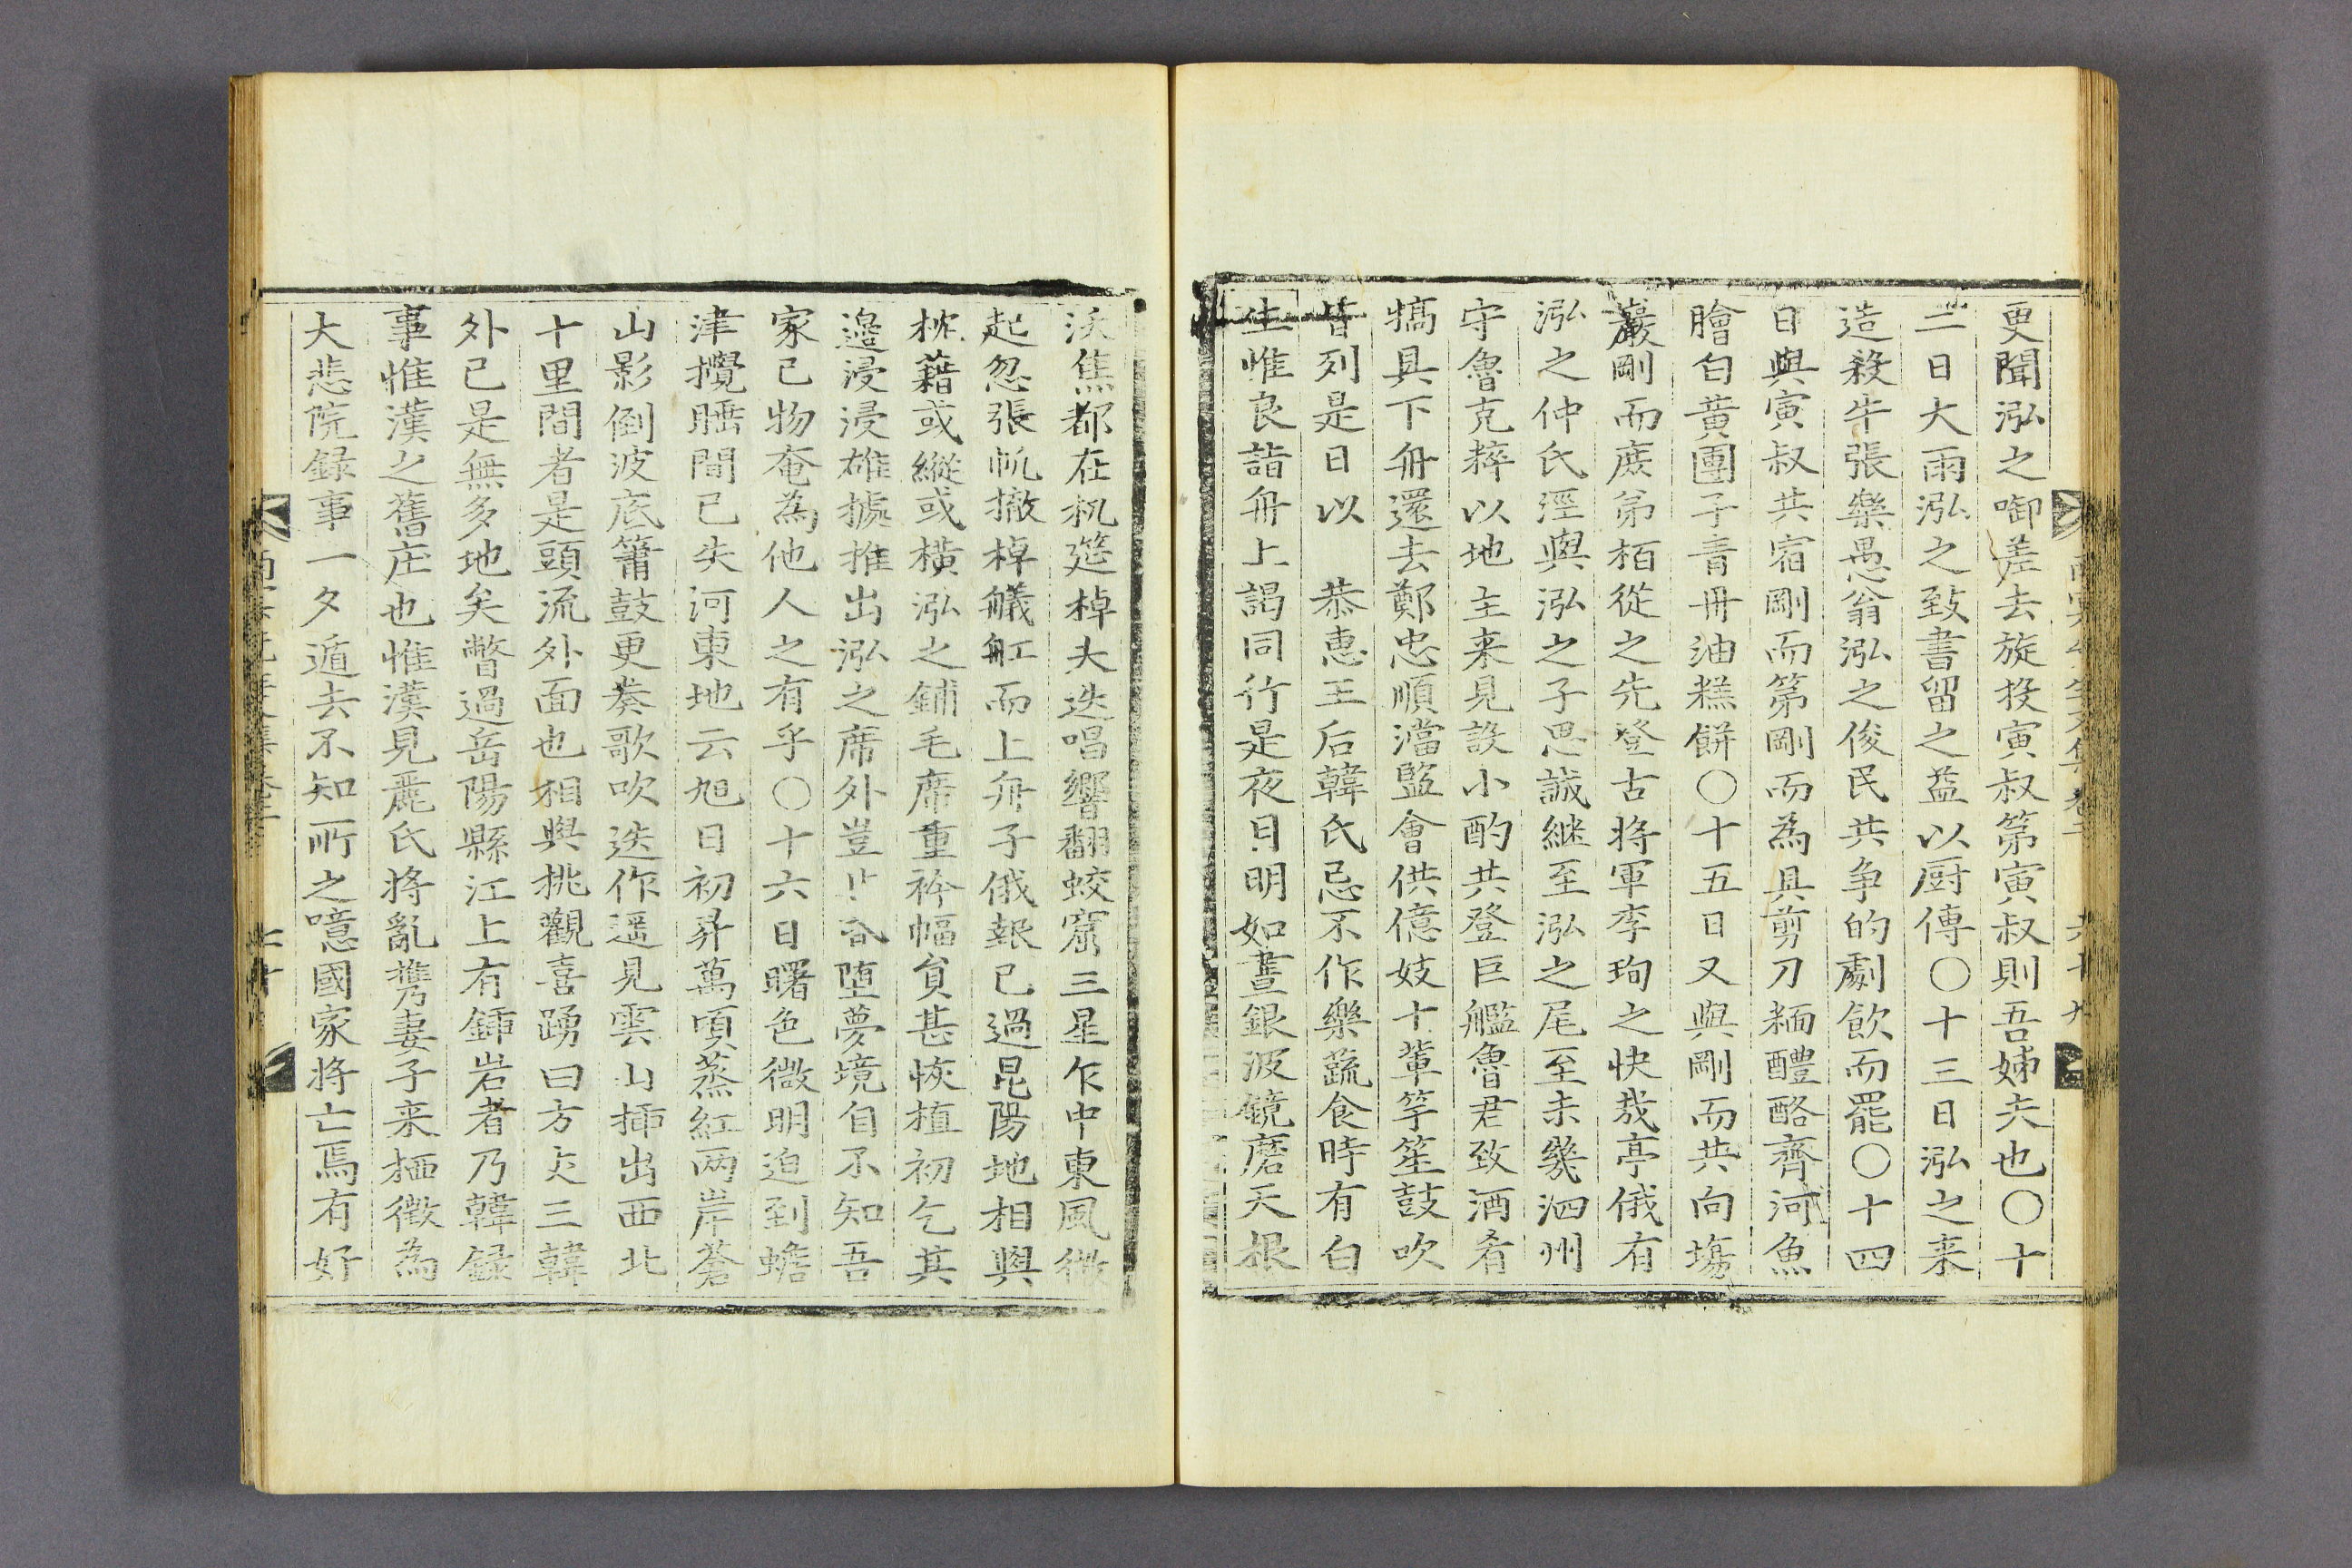 更聞泓之啣差去旋投寅叔第寅叔則吾姊夫也〇十
二日大雨泓之致書留之益以厨傳〇十三日泓之来
造殺牛張樂愚翁泓之俊民共争的劇飲而罷〇十四
日與寅叔共宿剛而第剛而為具剪刀糆醴酪齊河魚
膾白黄團子青丹油糕餅〇十五日又與剛而共向塲
巖剛而庶弟栢從之先登古将軍李珣之快㦲亭俄有
泓之仲氏涇與泓之子思誠継至泓之尾至未幾泗州
守魯克粹以地主来見設小酌共登巨艦魯君致酒肴
犒具下舟還去鄭忠順澢監會供億妓十軰竽笙鼓吹
皆列是日以　恭惠王后韓氏忌不作樂蔬食時有白
生惟良詣舟上謁同行是夜月明如晝銀波鏡磨天根
沃焦都在机筵棹夫迭唱響翻蛟窟三星乍中東風微
起忽張帆撤棹艤舡而上舟子俄報已過昆陽地相與
枕藉或縦或横泓之鋪毛席重衿幅負甚恢植初乞其
邉浸浸雄據推出泓之席外豈堕夢境自不知吾
家已物奄為他人之有乎〇十六日曙色微明迫到蟾
津攪睡間已失河東地云旭日初昇萬頃蒸紅两岸蒼
山影倒波底簫鼓更奏歌吹迭作遥見雲山揷出西北
十里間者是頭流外面也相與挑觀喜踴曰方丈三韓
外已是無多地矣瞥過岳陽縣江上有鍤岩者乃韓録
事惟漢之舊庄也惟漢見麗氏将亂携妻子来栖徴為
大悲院録事一夕遁去不知所之噫國家将亡焉有好